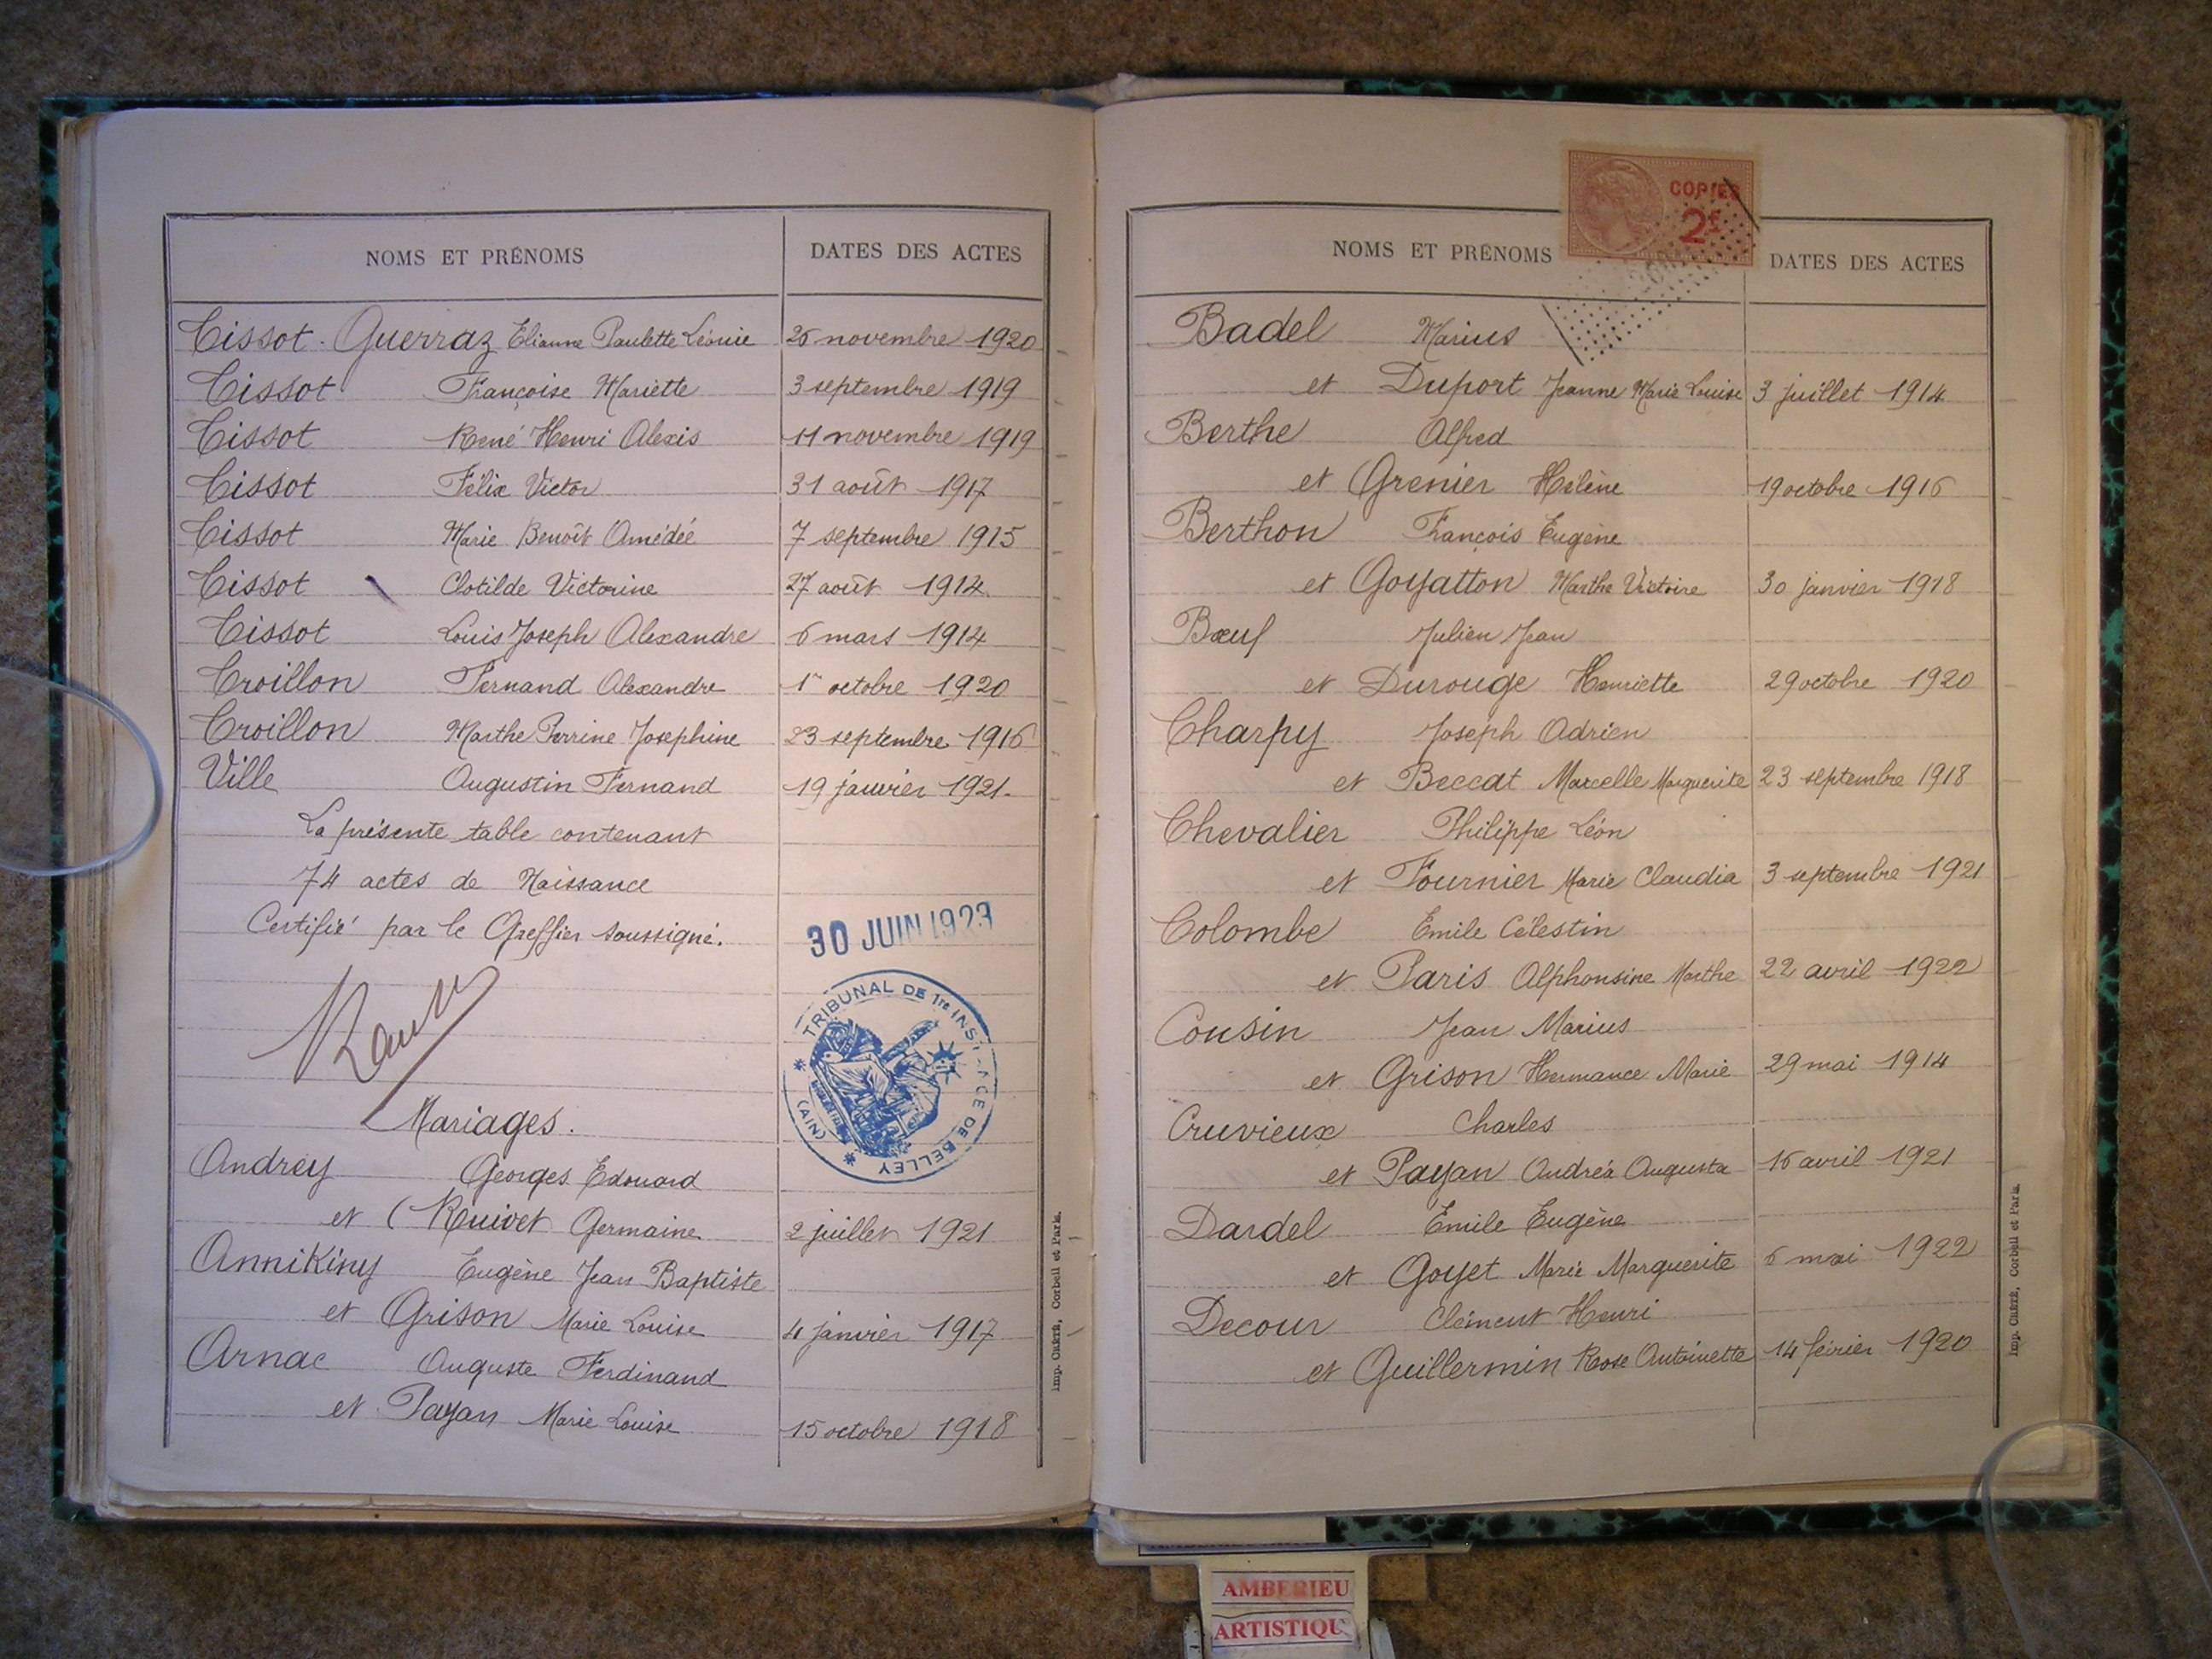 NOMS ET PRÉNOMS DATES DES ACTES
Tissot-Guerraz Elianne Paulette Léonie 26 novembre 1920
Tissot Françoise Mariette 3 septembre 1919
Tissot René Henri Alexis 11 novembre 1919
Tissot Félix Victor 31 août 1917
Tissot Marie Benoît Amédéé 7 septembre 1915
Tissot Clotilde Victorine 27 août 1914
Tissot Louis Joseph Alexandre 6 mars 1914
Troillon Fernand Alexandre 1er octobre 1920
Troillon Marthe Perrine Josephine 23 septembre 1916
Ville Augustin Fernand 19 janvier 1921.
La présente table contenant
74 actes de Naissance
Certifié par le Greffier soussigné.
30 JUIN 1923
TRIBUNAL DE 1re INSTANCE DE BELLEY
(AIN)
Mariages.
Andrey Georges Edouard
et Ruivet Germaine 2 juillet 1921
Annikiny Eugène Jean Baptiste
et Grison Marie Louise 4 janvier 1917
Arnac Auguste Ferdinand
et Payan Marie Louise 15 octobre 1918
Imp. CRÉTÉ, Corbeil et Paris.
COPIES
2F
NOMS ET PRÉNOMS DATES DES ACTES
Badel Marius
et Duport Jeanne Marie Louise 3 juillet 1914
Berthe Alfred
et Grenier Hélène 19 octobre 1916
Berthon François Eugène
et Goyatton Marthe Victoire 30 janvier 1918
Bœuf Julien Jean
et Durouge Henriette 29 octobre 1920
Charpy Joseph Adrien
et Beccat Marcelle Marguerite 23 septembre 1918
Chevalier Philippe Léon
et Fournier Marie Claudia 3 septembre 1921
Colombe Emile Célestin
et Paris Alphonsine Marthe 22 avril 1922
Cousin Jean Marius
et Grison Hermance Marie 29 mai 1914
Cruvieux Charles
et Payan Andréa Augusta 16 avril 1921
Dardel Emile Eugène
et Goyet Marie Marguerite 6 mai 1922
Decour Clément Henri
et Guillermin Rose Antoinette 14 février 1920
Imp. CRÉTÉ, Corbeil et Paris.
AMBERIEU
ARTISTIQU